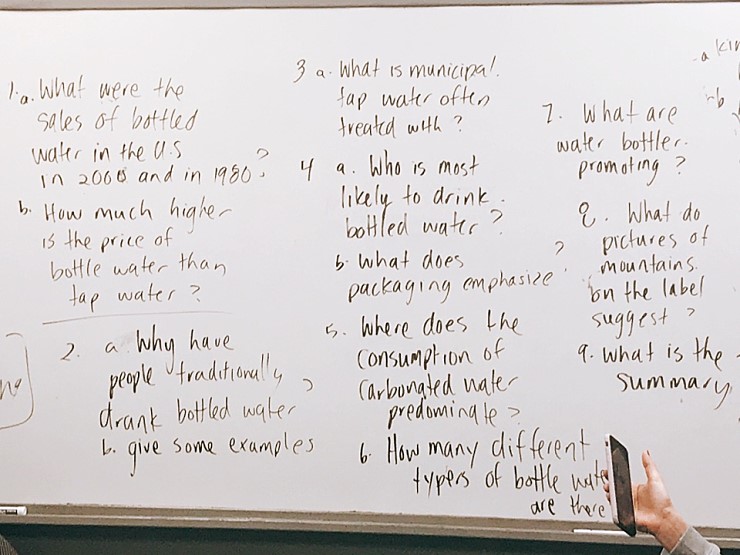 1. a. What were the
sales of bottled
water in the U.S
in 2000 and in 1980?
b. How much higher
is the price of
bottle water than
tap water?
2. a. Why have
people traditionally
drank bottled water?
b. give some examples
3 a. What is municipal
tap water often
treated with?
4 a. Who is most
likely to drink
bottled water?
b. What does
packaging emphasize?
5. Where does the
consumption of
Carbonated water
predominate?
6. How many different
typers of bottle wate
are there
7. What are
water bottler.
promoting?
8. What do
pictures of
mountains
on the label
suggest?
9. what is the
summary
a kin
b